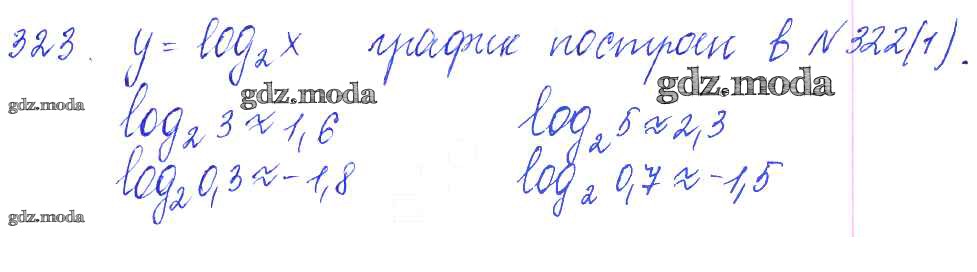 323. y = log₂ x график построен в №322(1).
gdz.moda gdz.moda gdz.moda
log₂ 3 ≈ 1,6 log₂ 5 ≈ 2,3
log₂ 0,3 ≈ -1,8 log₂ 0,7 ≈ -1,5
gdz.moda